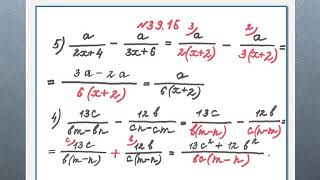 №39.16
5) a/(2x+4) - a/(3x+6) = a/(2(x+2)) ³ - a/(3(x+2)) ² =
= (3a-2a)/(6(x+2)) = a/(6(x+2))
4) 13c/(bm-bn) - 12b/(cn-cm) = 13c/(b(m-n)) - 12b/(c(n-m)) =
= 13c/(b(m-n)) ᶜ + 12b/(c(m-n)) ᵇ = (13c²+12b²)/(bc(m-n))